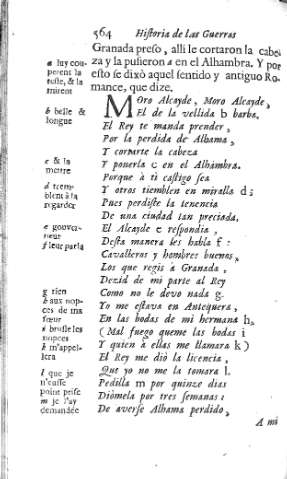 564 Historia de las Guerras
Granada preso, alli le cortaron la cabe-
za y la pusieron a en el Alhambra. Y por
esto se dixò aquel sentido y antiguo Ro-
mance, que dize.
Moro Alcayde, Moro Alcayde,
El de la vellida b barba,
El Rey te manda prender,
Por la perdida de Alhama,
Y cortarte la cabeza
Y ponerla c en el Alhambra.
Porque à ti castigo sea
Y otros tiemblen en miralla d;
Pues perdiste la tenencia
De una ciudad tan preciada.
El Alcayde e respondia,
Desta manera les habla f:
Cavalleros y hombres buenos,
Los que regis a Granada,
Dezid de mi parte al Rey
Como no le devo nada g.
Yo me estava en Antequera,
En las bodas de mi hermana h,
(Mal fuego queme las bodas i
Y quien à ellas me llamara k)
El Rey me diò la licencia,
Que yo no me la tomara l.
Pedilla m por quinze dias
Diòmela por tres semanas:
De averse Alhama perdido,
A mi
a luy cou-
perent la
teste, & la
mirent
b belle &
longue
c & la
mettre
d trem-
blent à la
regarder
e gouver-
neur
f leur parla
g rien
h aux nop-
ces de ma
sœur
i brusle les
nopces
k m'appel-
lera
l que je
n'eusse
point prise
m je l'ay
demandée